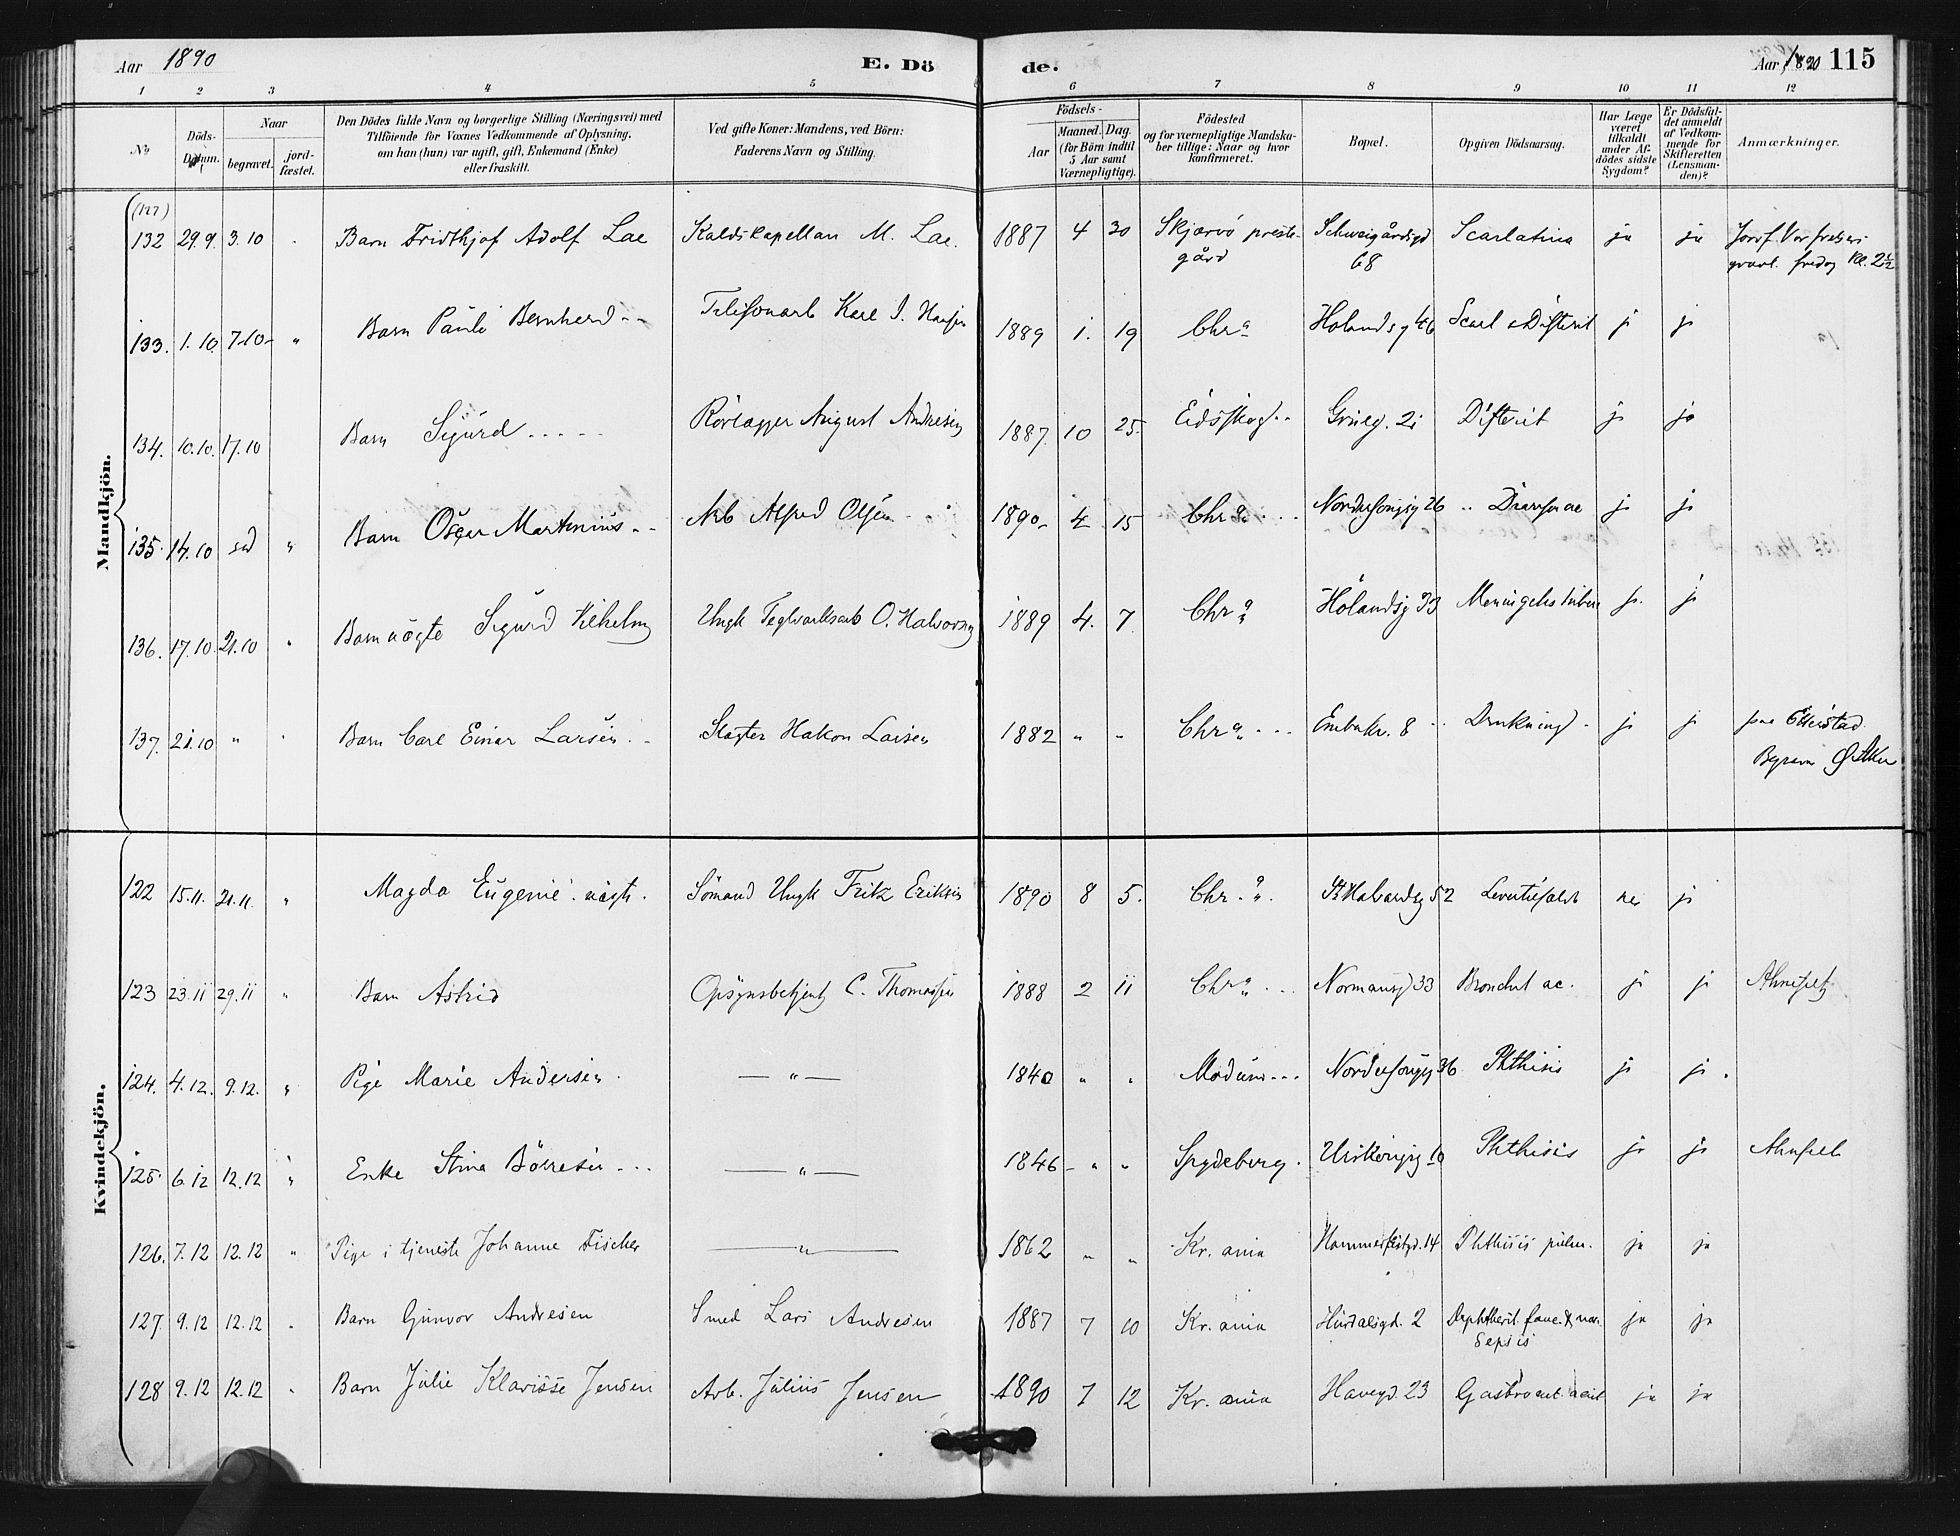 Aar 1890 E. Dö de. Aar 1890 115
1 2 3 4 5 6 7 8 9 10 11 12
No
Döds-
Datum.
Naar
begravet.
jord-
fæstet.
Den Dödes fulde Navn og borgerlige Stilling (Næringsvei) med
Tilföiende for Voxnes Vedkommende af Oplysning,
om han (hun) var ugift, gift, Enkemand (Enke)
eller fraskilt.
Ved gifte Koner: Mandens, ved Börn:
Faderens Navn og Stilling.
Födsels-
Aar
Maaned. Dag.
(for Börn indtil
5 Aar samt
Værnepligtige).
Födested
og for værnepligtige Mandska-
ber tillige: Naar og hvor
konfirmeret.
Bopæl.
Opgiven Dödsaarsag.
Har Læge
været
tilkaldt
under Af-
dödes sidste
Sygdom?
Er Dödsfal-
det anmeldt
af Vedkom-
mende for
Skifteretten
(Lensman-
den)?
Anmærkninger.
Mandkjön.
132 29.9. 3.10 Barn Fridthjof Adolf Lae Kaldskapellan M. Lae. 1887 4 30 Skjærvö preste- Schweigårdsgd Scarlatina ja ja
gård 68 fredag Kl. 2½
133. 1.10. 7.10. " Barn Pauli Bernhard Karl J. 1889 1. 19 Chr a Holandsg 46 Scarl & Difterit j j
134. 10.10. 17.10 Barn Sigurd Rörlægger August Andresen 1887. 10 25. Eidsskog Difterit j ja
135. 14.10 " Barn Oscar Martinius Arb Alfred Olsen 1890 4 15 Chr a 26 j j
136. 17.10. 21.10 Barn uægte Sigurd Vilhelm Ungk Teglverksarb O. 1889 4. 7. Chr a Hölandsg 33 j. j
137. 21.10 " Barn Carl Einar Larsen Slagter Hakon Larsen 1882 " " Chr a 8 Drukning j j paa Etterstad
Kvindekjön.
122 15.11. 21.11. " Magda Eugenie uægt. Sömand Ungk Fritz Eriksen 1890 8 5. Chr. a. St Halvardsg 52 nei j
123 23.11 29.11 " Barn Astrid Opsynsbetjent C. Thomassen 1888 2 11 Chr a Normansg 33 Bronchit ac. j j
124. 4.12. 9.12. " Pige Marie Andersen — " — 1840 " " Modum 36 Phthisis j j.
125. 6.12 12.12 " Enke Stina Börresen — " — 1846 " " Spydeberg. 10 Phthisis j j
126. 7.12 12.12 " Pige i tjeneste Johanne Fischer — " — 1862 " " Kr. ania Hammerfestgd. 14 Phthisis pulm. ja ja
127. 9.12 12.12 Barn Gunvor Andresen Smed Lars Andresen 1887 7 10 Kr. ania Hurdalsgd. 2 Diphtherit. fauc. & nar. ja ja
Sepsis
128 9.12 12.12 Barn Julie Klarisse Jensen Arb. Julius Jensen 1890 7 12 Kr. ania Havegd. 23 Gastroent. acut ja ja